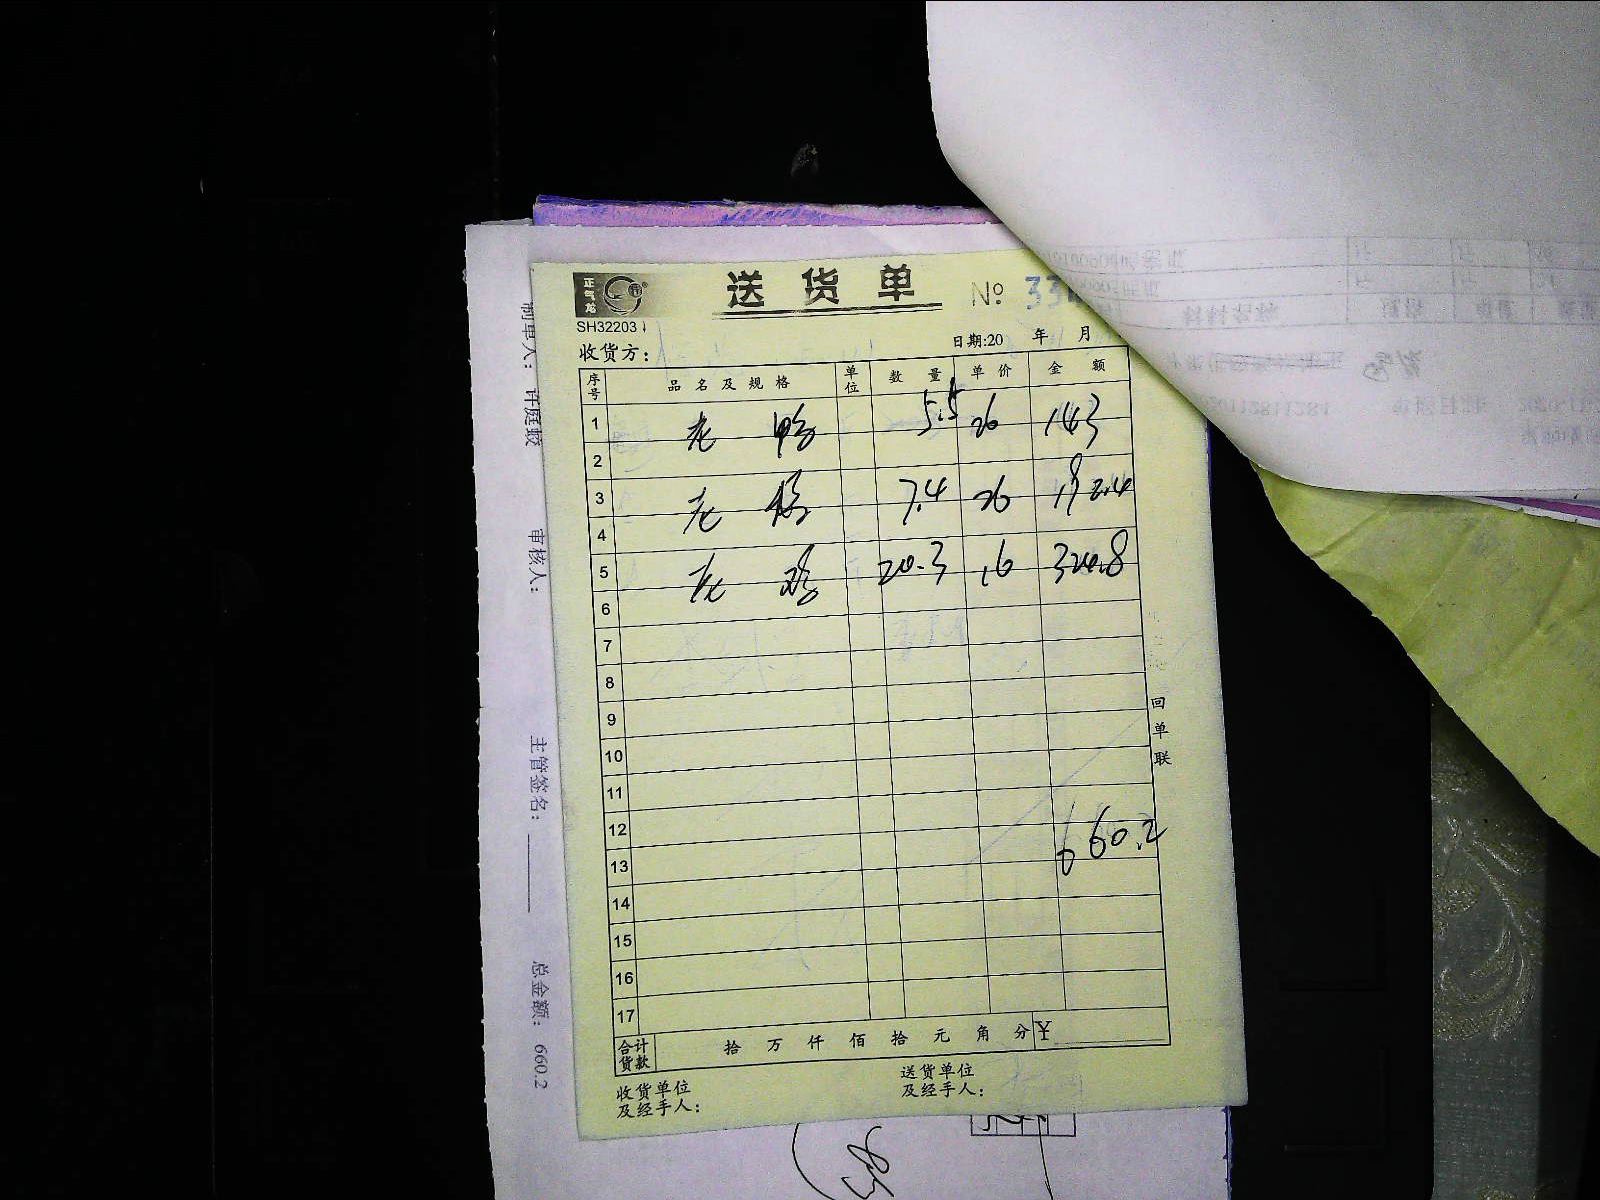 正气龙
送货单
№ 33
SH32203
收货方：
日期:20 年 月
序号 品名及规格 单位 数量 单价 金额
1 老鸭 5.5 26 143
2
3 老鸭 7.4 26 192.4
4
5 老鸡 20.3 16 324.8
6
7
8
9
10
11
12
660.2
13
14
15
16
17
合计货款 拾 万 仟 佰 拾 元 角 分 ¥
收货单位及经手人：
送货单位及经手人：
回单联
制单人： 许庭蛟 审核人： 主管签名： 总金额： 660.2